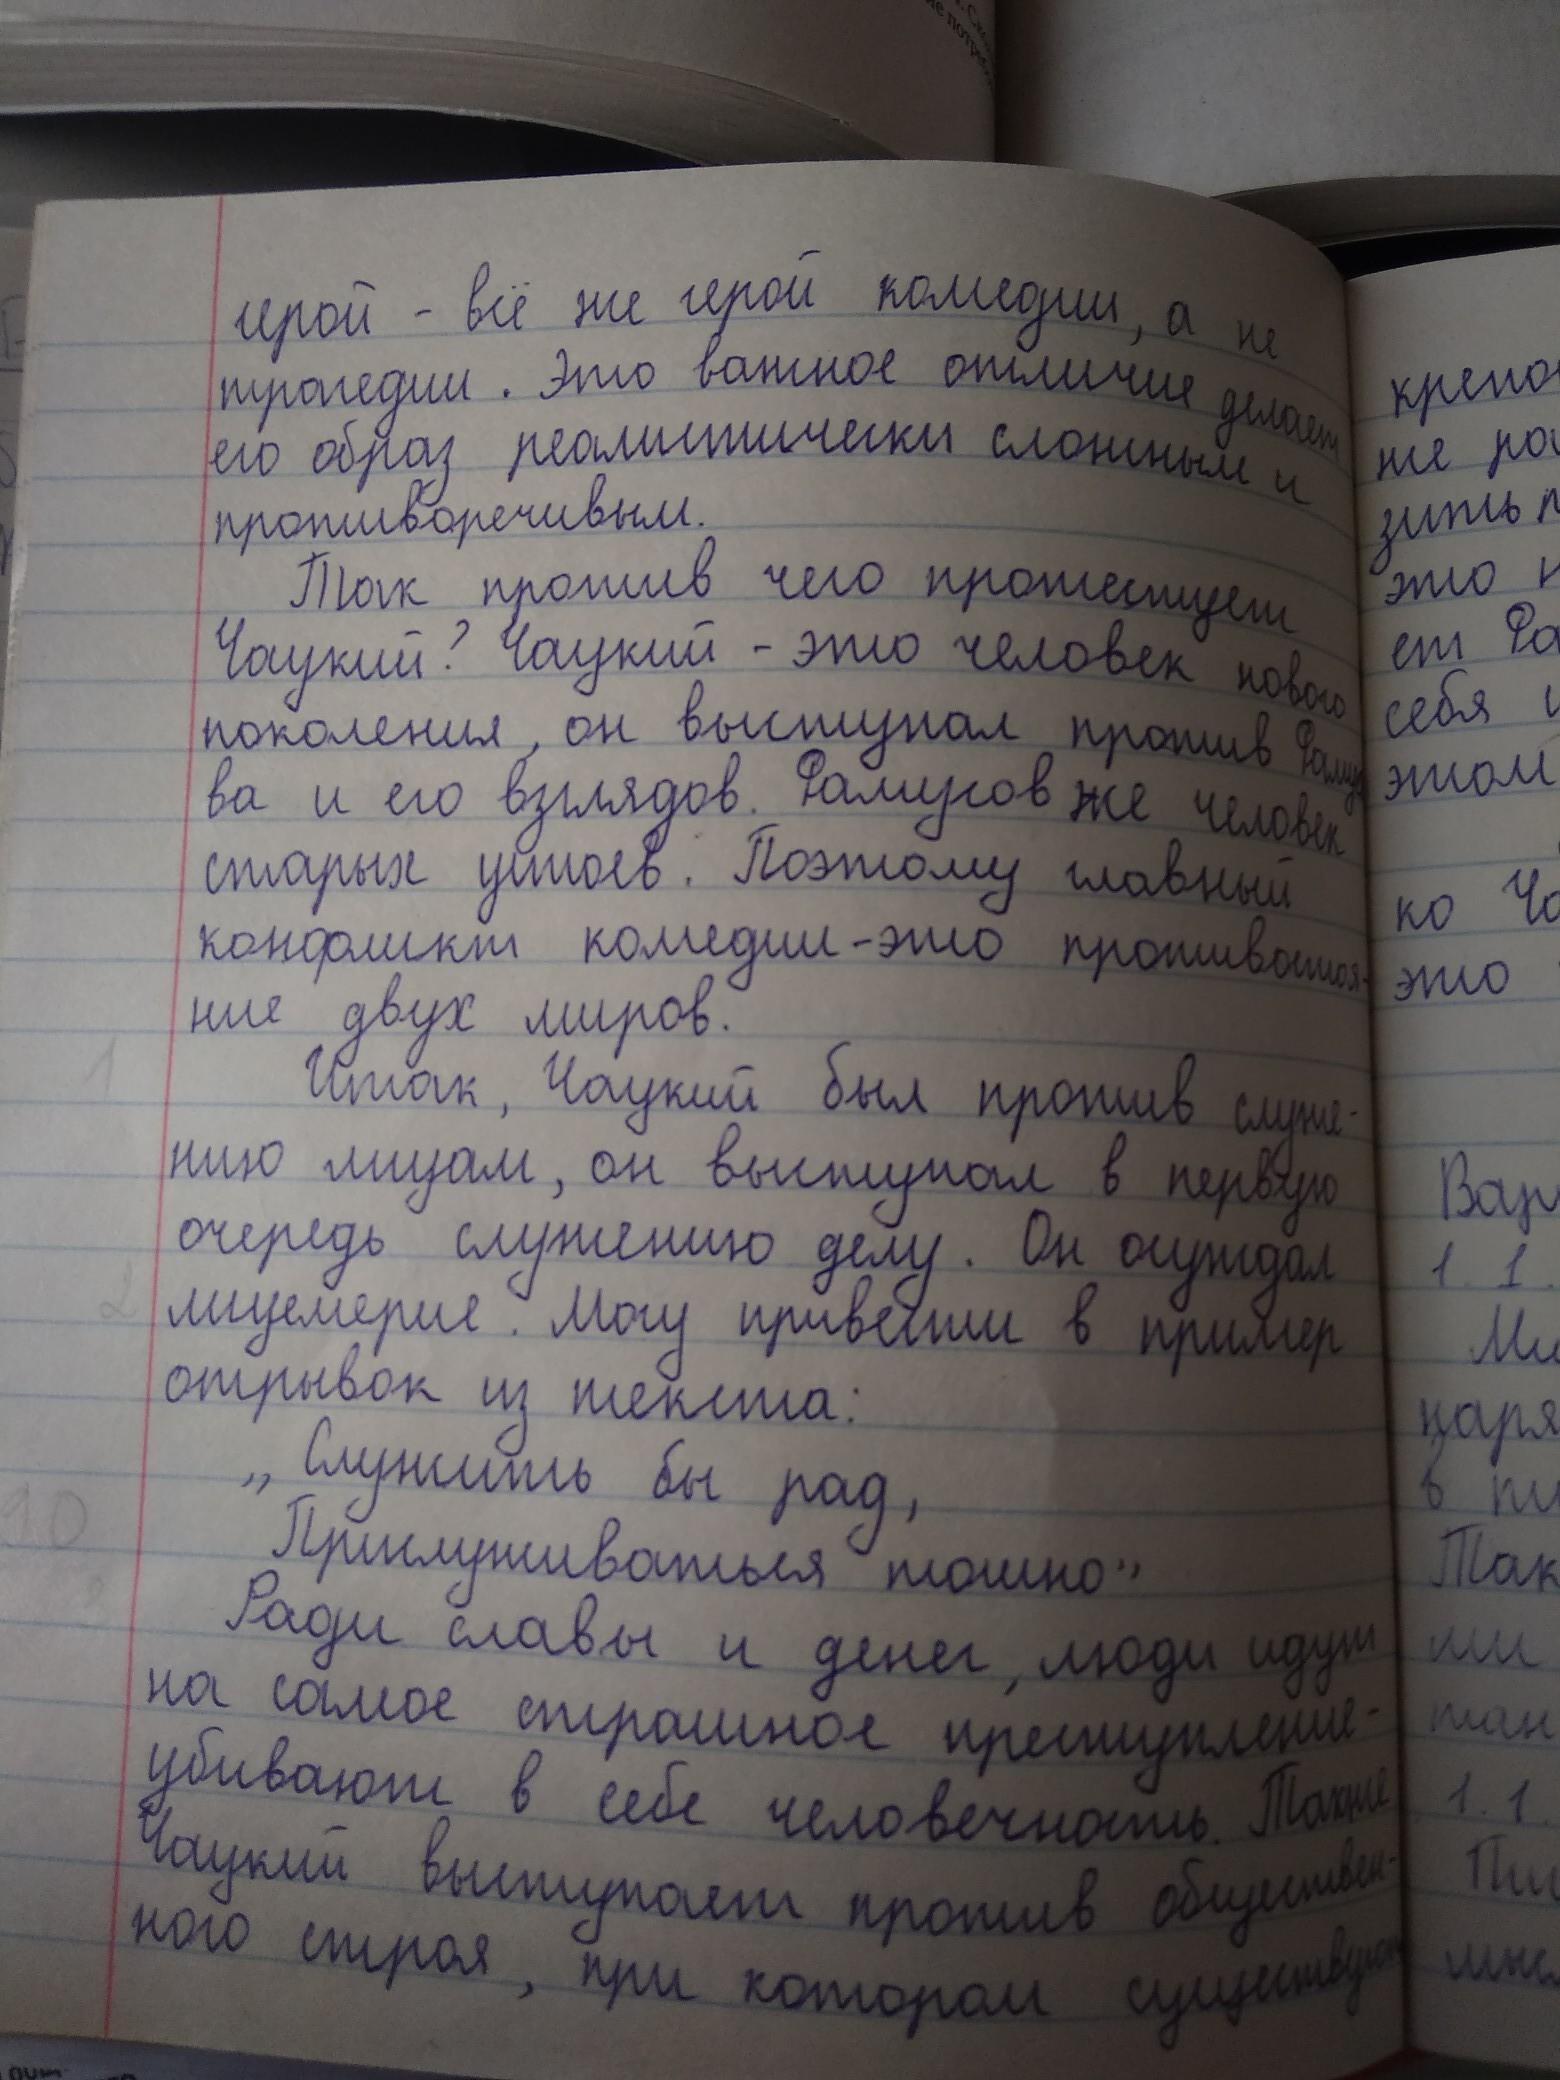 герой - всё же герой комедии, а не
трагедии. Это важное отличие делает
его образ реалистически сложным и
противоречивым.
Так против чего протестует
Чацкий? Чацкий - это человек нового
поколения, он выступал против Фамусо
ва и его взглядов. Фамусов же человек
старых устоев. Поэтому главный
конфликт комедии - это противостоя-
ние двух миров.
Итак, Чацкий был против служе-
нию лицам, он выступал в первую
очередь служению делу. Он осуждал
лицемерие. Могу привести в пример
отрывок из текста:
„Служить бы рад,
Прислуживаться тошно"
Ради славы и денег, люди идут
на самое страшное преступление -
убивают в себе человечность. Также
Чацкий выступает против обществен-
ного строя, при котором существуют
крепос
же
зить
это н
ет Фа
себя
этом
ко Ча
это
Вар
1. 1.
царя
в
Так
1. 1.